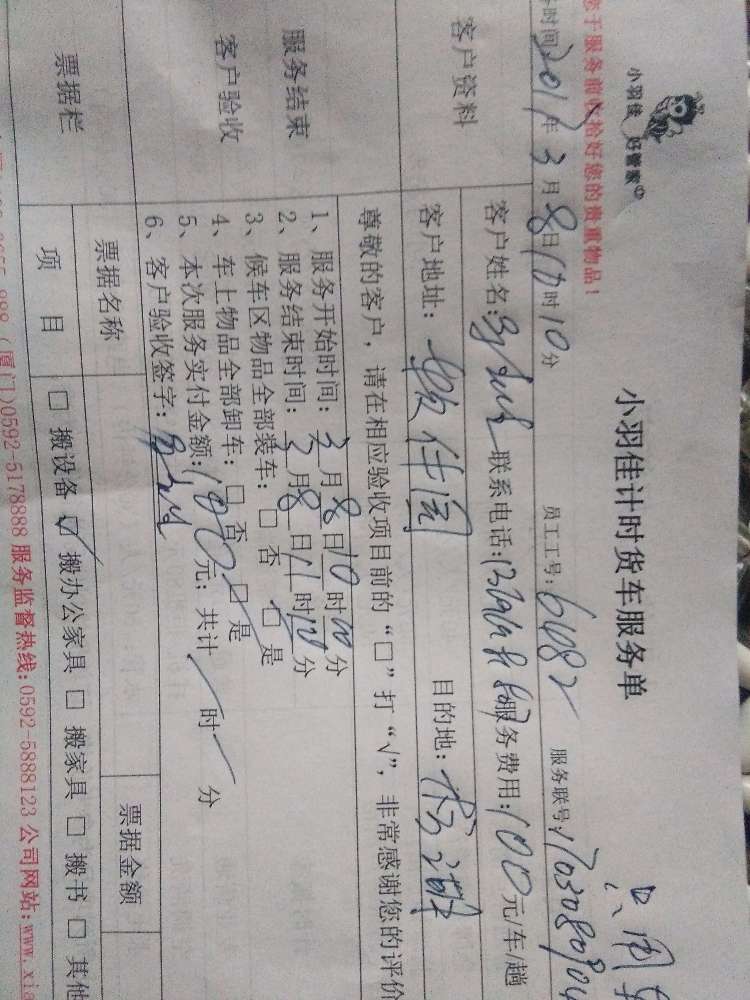 您于服务前收拾好您的贵重物品！
小羽佳 好管家
小羽佳计时货车服务单
时间 2017年3月8日10时10分 员工工号: 6082 服务联号:
客户资料
客户姓名: 联系电话: 服务费用: 100元/车/趟
客户地址: 目的地:
服务结束
客户验收
尊敬的客户，请在相应验收项目前的“□”打“√”，非常感谢您的评价
1、服务开始时间: 3月8日10时00分
2、服务结束时间: 3月8日11时10分
3、候车区物品全部装车: □ 否 □ 是
4、车上物品全部卸车: □ 否 □ 是
5、本次服务实付金额: 100元; 共计 / 时 / 分
6、客户验收签字:
票据栏
票据名称 票据金额
项 目 □ 搬设备 ☑ 搬办公家具 □ 搬家具 □ 搬书 □ 其他
(厦门)0592-5178888 服务监督热线:0592-5888123 公司网站:www.xia